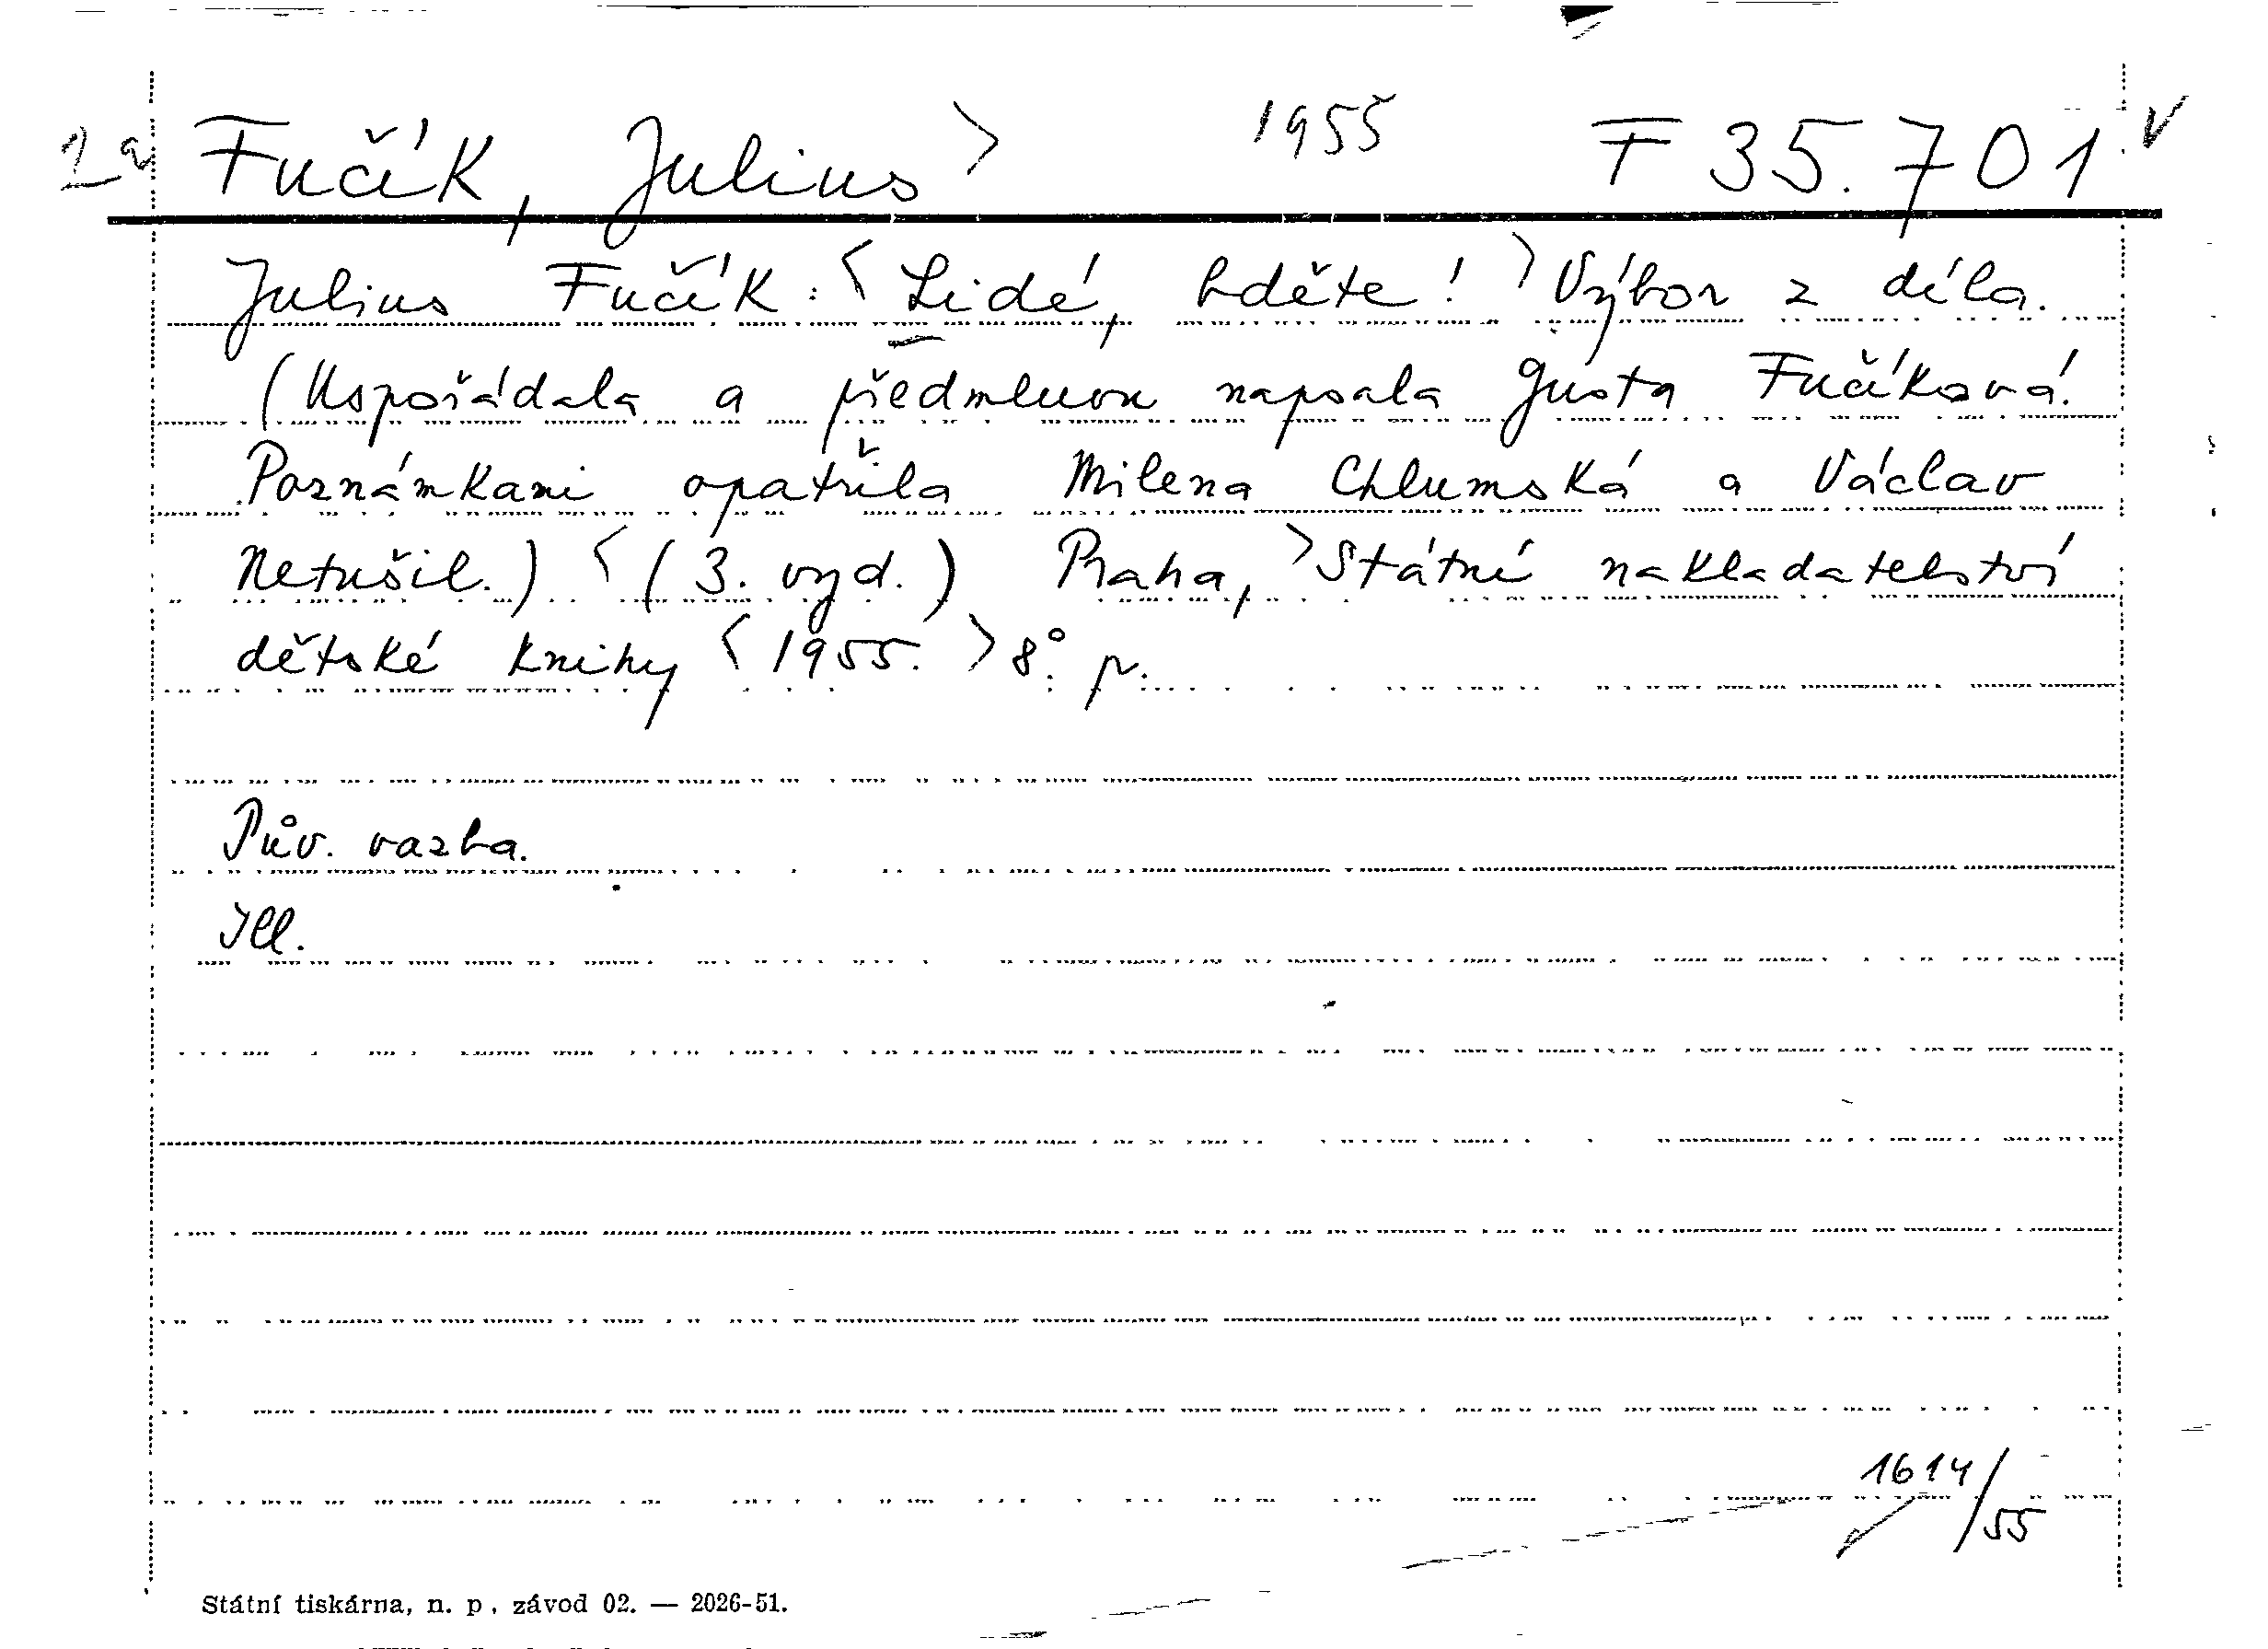 2a Fučík, Julius > 1955 F 35.701 v
Julius Fučík: < Lidé, bděte! > Výbor z díla.
(Uspořádala a předmluvou napsala Gusta Fučíková.
Poznámkami opatřila Milena Chlumská a Václav
Netušil.) < (3. vyd.) Praha, > Státní nakladatelství
dětské knihy < 1955. > 8°. p.
Pův. vazba.
Ill.
1614/55
Státní tiskárna, n. p., závod 02. — 2026-51.